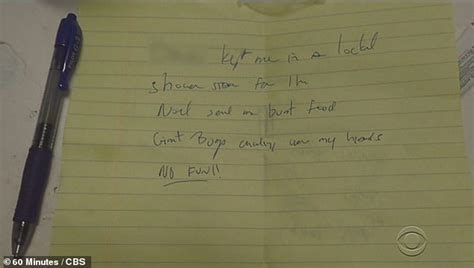 Kept me in a locked
shower room for 1 hr
Noel sent in burnt food
Giant Bugs crawling over my hands
NO FUN!!
60 Minutes / CBS